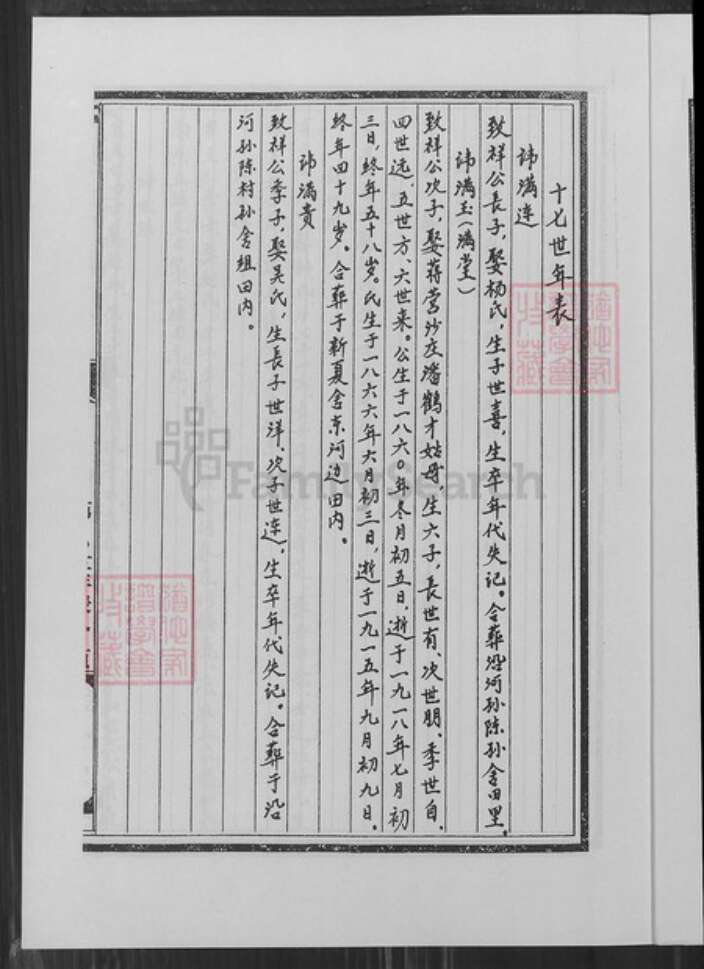 十七世年表
讳满连
致祥公長子，娶杨氏，生子世喜，生卒年代失记。合葬沿河孙陈孙舍田里。
讳满玉（满堂）
致祥公次子，娶蒋营沙庄潘鹤才姑母，生六子，長世有、次世朋、季世自、
四世远，五世方、六世来。公生于一八六〇年冬月初五日，逝于一九一八年七月初
三日，终年五十八岁。氏生于一八六六年六月初三日，逝于一九一五年九月初九日。
终年四十九岁。合葬于新夏舍东河边田内。
讳满贵
致祥公季子，娶吴氏，生長子世洋、次子世连，生卒年代失记。合葬于沿
河孙陈村孙舍组田内。
FamilySearch